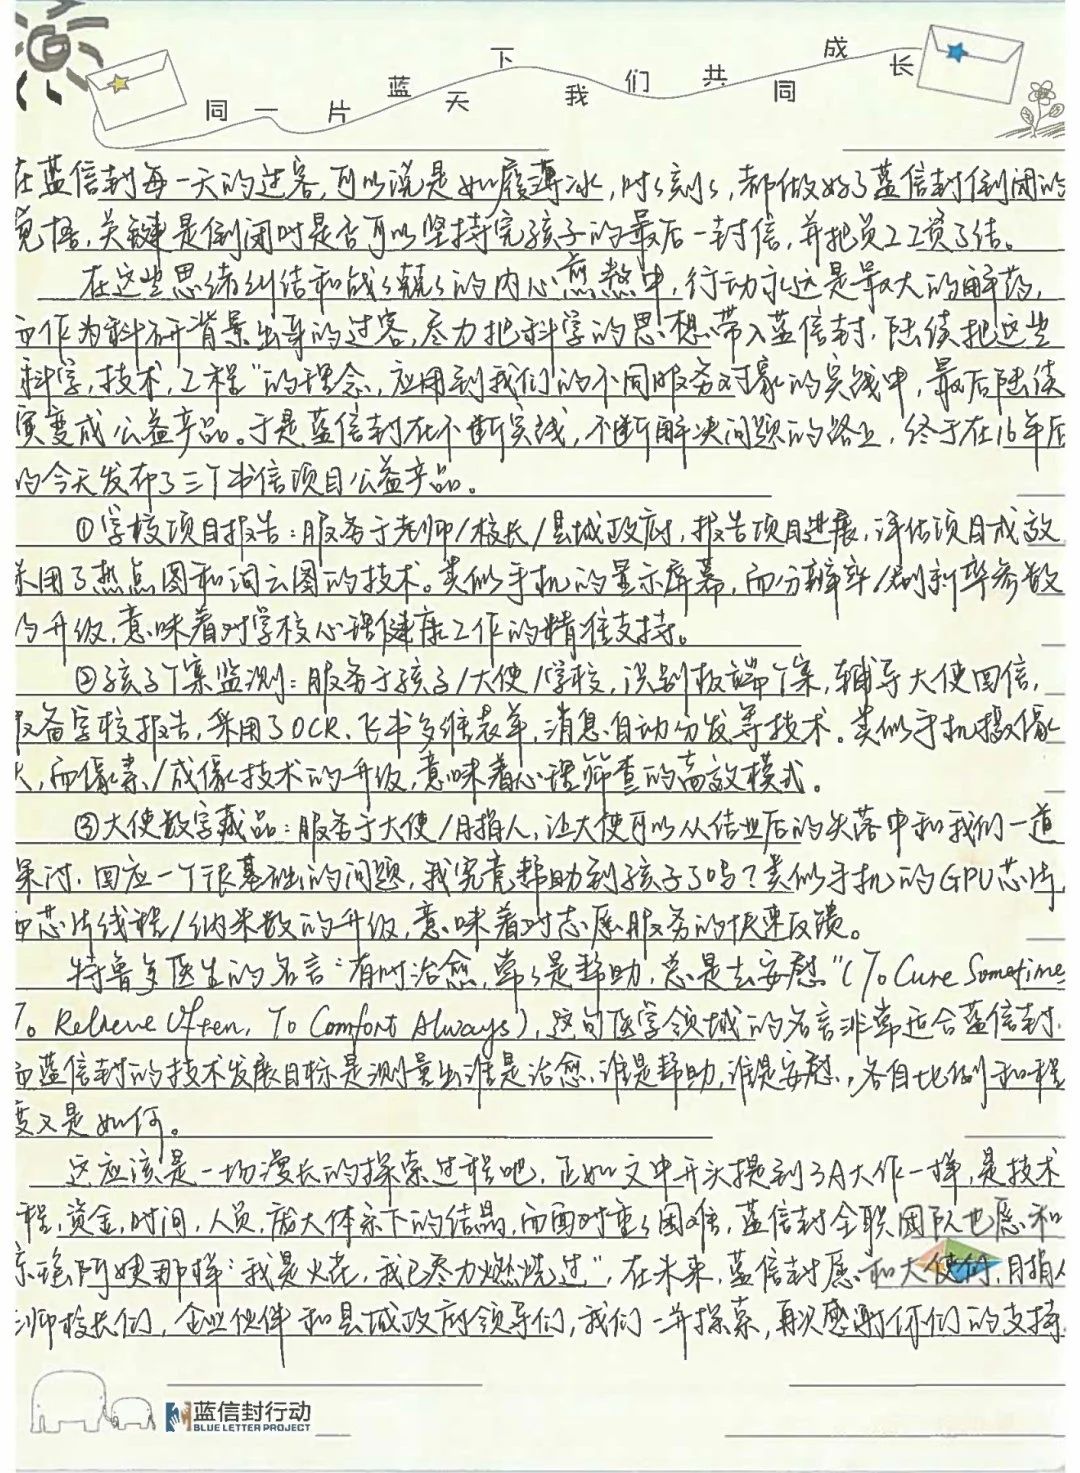 同一片蓝天下我们共同成长
在蓝信封每一天的过客,可以说是如履薄冰,时时刻刻,都做好了蓝信封倒闭的
觉悟,关键是倒闭时是否可以坚持完孩子的最后一封信,并把员工工资了结。
在这些思绪纠结和战战兢兢的内心煎熬中,行动永远是最大的解药,
而作为科研背景出身的过客,尽力把科学的思想带入蓝信封,陆续把这些
科学,技术,工程"的理念,应用到我们的不同服务对象的实践中,最后陆续
演变成公益产品。于是蓝信封在不断实践,不断解决问题的路上,终于在16年后
的今天发布了三个书信项目公益产品。
①学校项目报告:服务于老师/校长/县域政府,报告项目进展,评估项目成效
采用了热点图和词云图的技术。类似手机的显示屏幕,而分辨率/刷新率参数
的升级,意味着对学校心理健康工作的精准支持。
②孩子个案监测:服务于孩子/大使/学校,识别极端个案,辅导大使回信,
报备学校报告,采用了OCR、飞书多维表单,消息自动分发等技术。类似手机摄像
头,而像素/成像技术的升级,意味着心理筛查的高效模式。
③大使数字藏品:服务于大使/月捐人,让大使可以从结业后的失落中和我们一道
探讨,回应一个很基础的问题,我究竟帮助到孩子了吗?类似手机的GPU芯片,
而芯片线程/纳米数的升级,意味着对志愿服务的快速反馈。
特鲁多医生的名言:"有时治愈,常常是帮助,总是去安慰"(To Cure Sometimes
To Relieve Often, To Comfort Always),这句医学领域的名言非常适合蓝信封.
而蓝信封的技术发展目标是测量出谁是治愈、谁是帮助,谁是安慰,各自比例和程
度又是如何。
这应该是一场漫长的探索过程吧,正如文中开头提到了A大作一样,是技术
程,资金,时间,人员,庞大体系下的结晶,而面对重重困难,蓝信封全职团队也愿和
阿姨那样:"我是火花,我已尽力燃烧过",在未来,蓝信封愿和大使们,月捐人
师校长们,企业伙伴和县域政府领导们,我们一并探索,再次感谢你们的支持
蓝信封行动
BLUE LETTER PROJECT